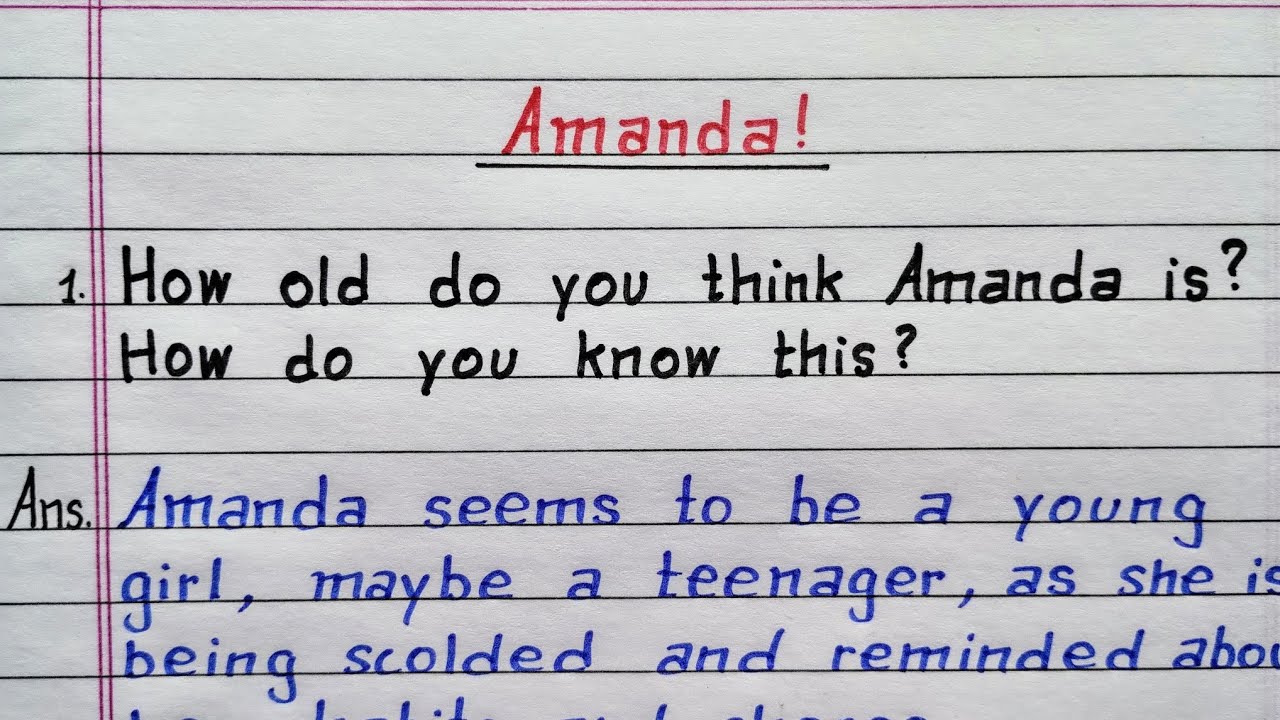 Amanda!
1. How old do you think Amanda is?
How do you know this?
Ans. Amanda seems to be a young
girl, maybe a teenager, as she is
being scolded and reminded abou